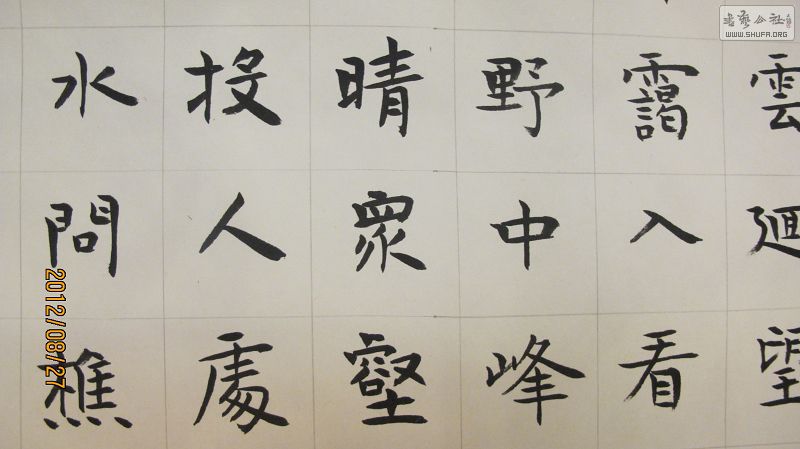 雲廻望
靄入看
野中峰
晴衆壑
投人處
水問樵
2012/08/27
书艺公社
WWW.SHUFA.ORG